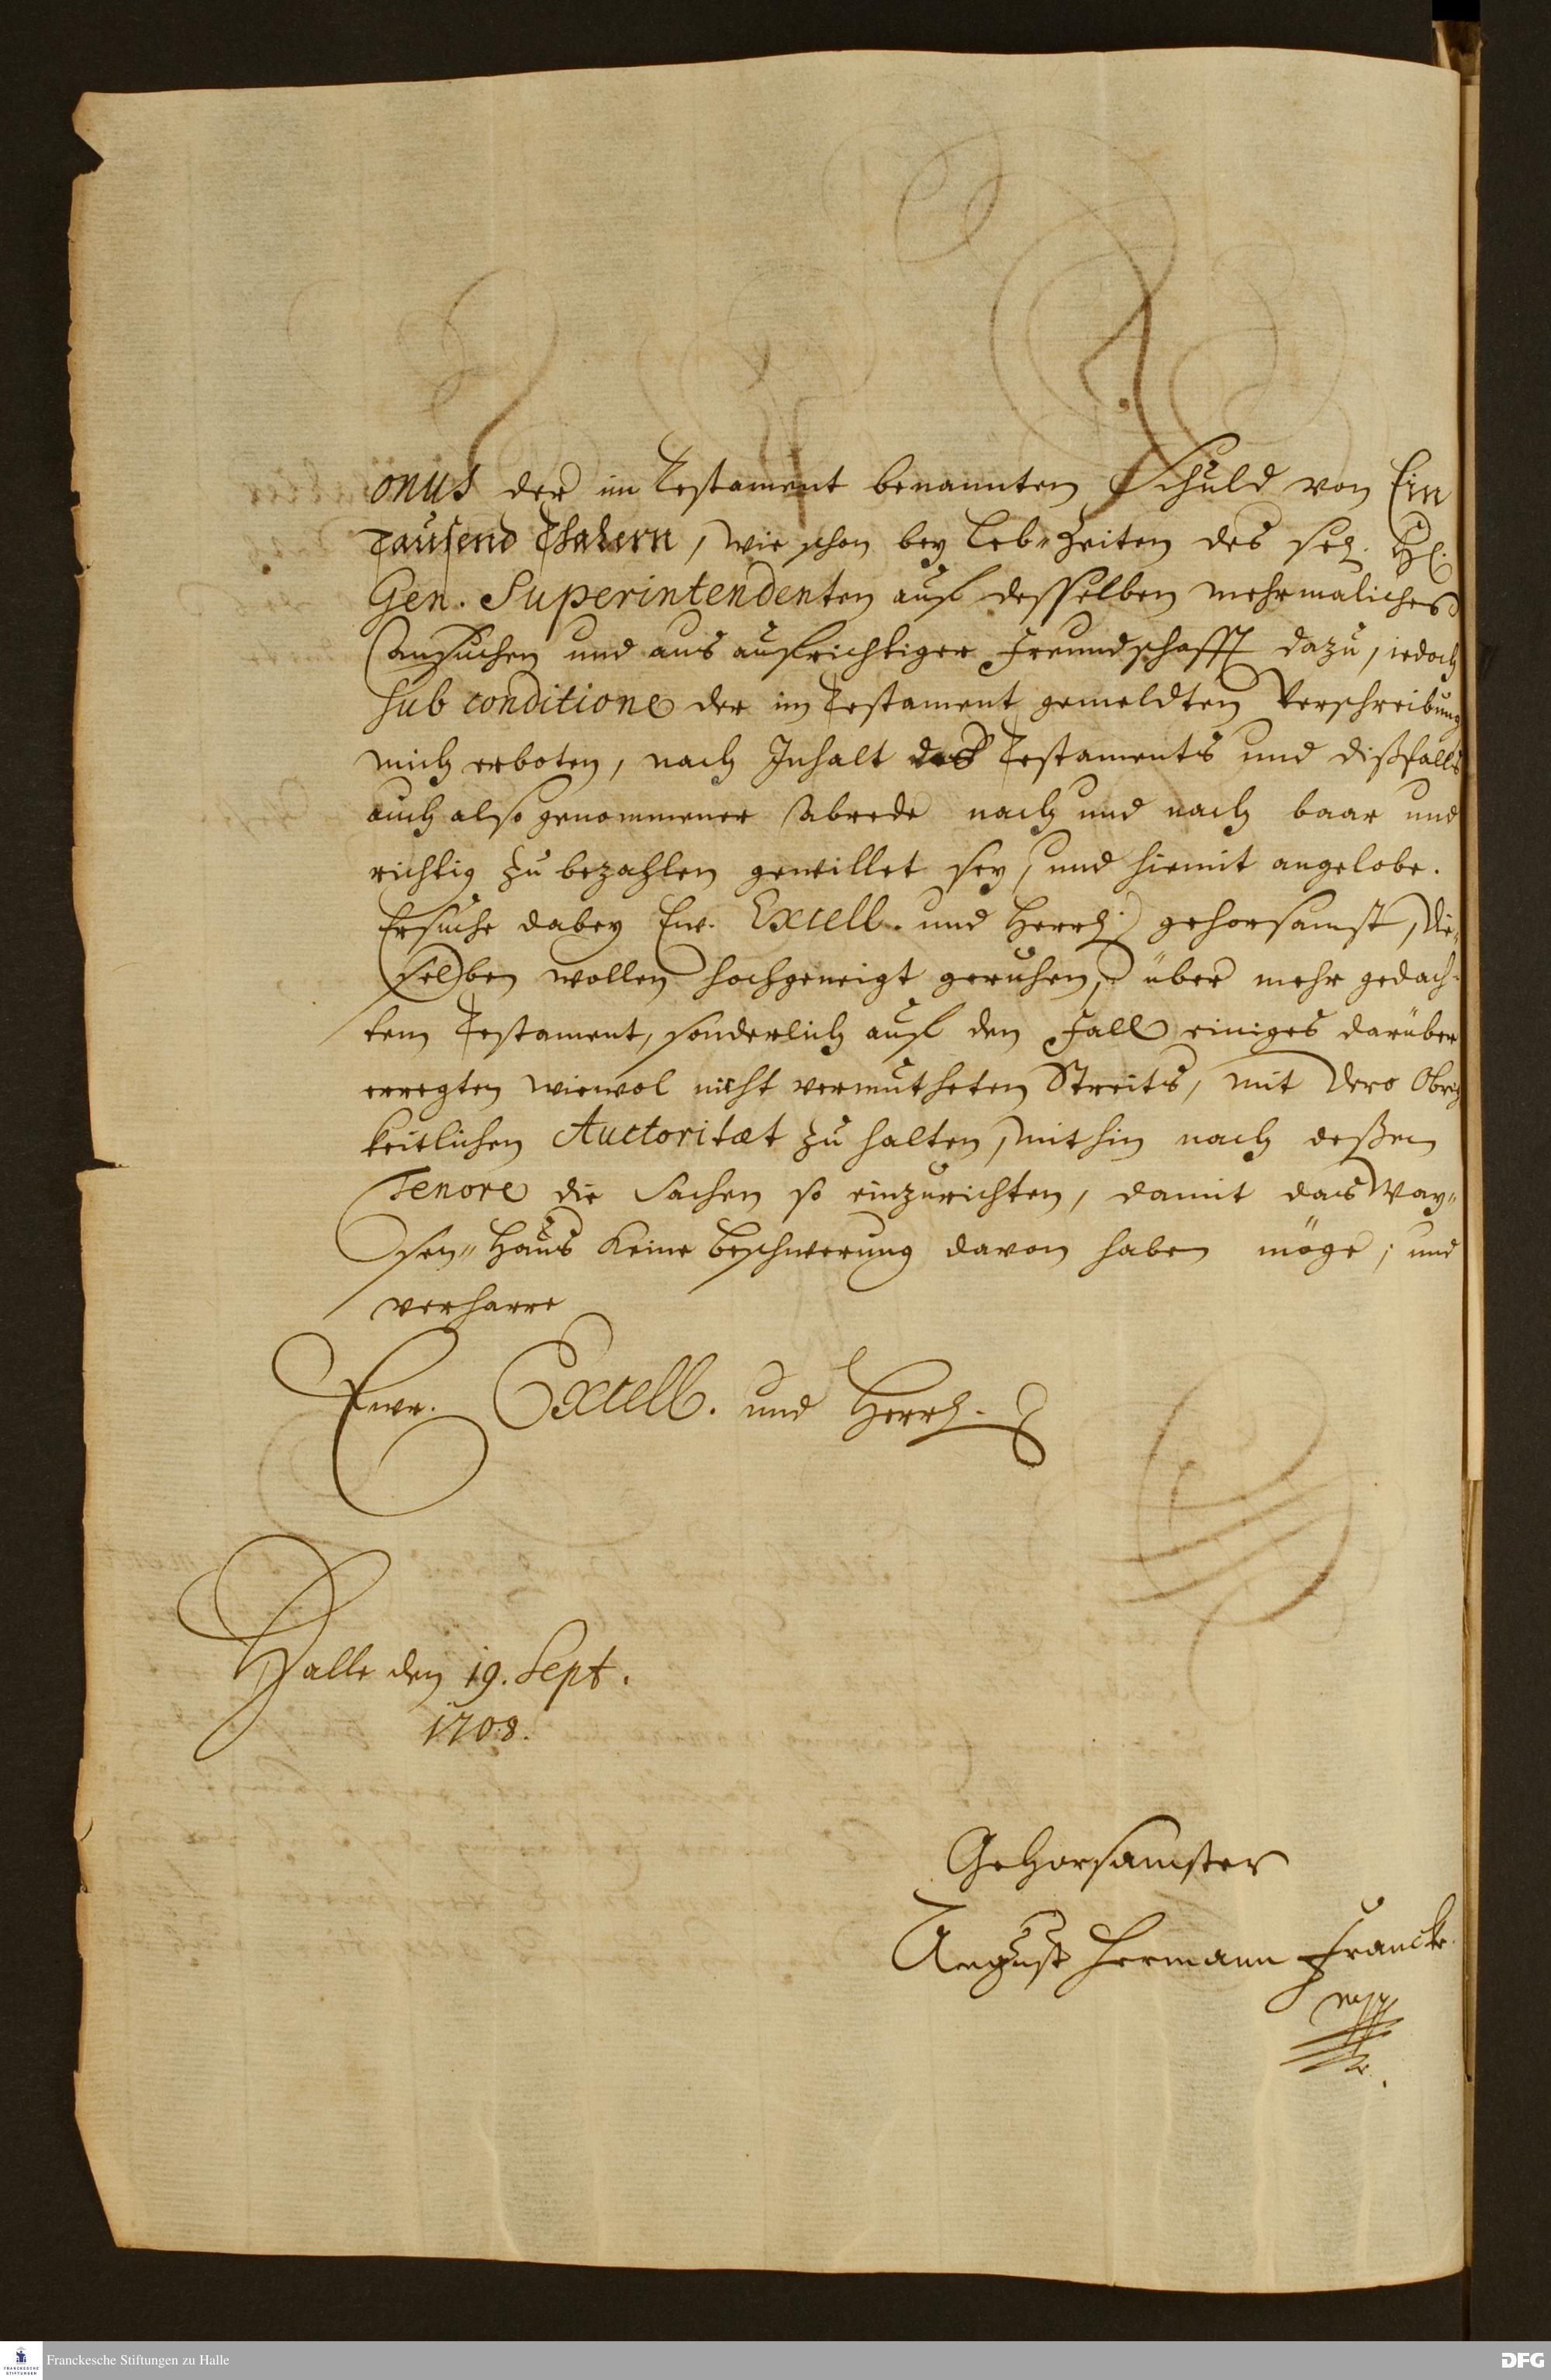 onus der im Testament benannten Schuld von Ein
Tausend Thalern, wie schon bey Leb-Zeiten des sel. H.
Gen. Superintendenten auf desselben mehrmaliches
Ansuchen und aus aufrichtiger Freundschafft dazu, iedoch
sub conditione der im Testament gemeldten Verschreibung
mich erboten, nach Inhalt des Testaments und dißfalls
auch also genommener Abrede nach und nach baar und
richtig zu bezahlen gewillet sey, und hiemit angelobe.
Ersuche dabey Ew. Excell. und Herrl. gehorsamst, die-
selben wollen hochgeneigt geruhen, über mehr gedach-
tem Testament, sonderlich auf den Fall einiges darüber
erregten wiewol nicht vermutheten Streits, mit Dero Obrig
keitlichen Auctoritæt zu halten, mithin nach deßen
Tenore die Sachen so einzurichten, damit das Way-
sen-Haus keine Beschwerung davon haben möge; und
verharre
Ewr. Excell. und Herrl.
Halle den 19. Sept.
1708.
Gehorsamster
August Hermann Francke
mpp
Franckesche Stiftungen zu Halle
FRANCKESCHE STIFTUNGEN
DFG